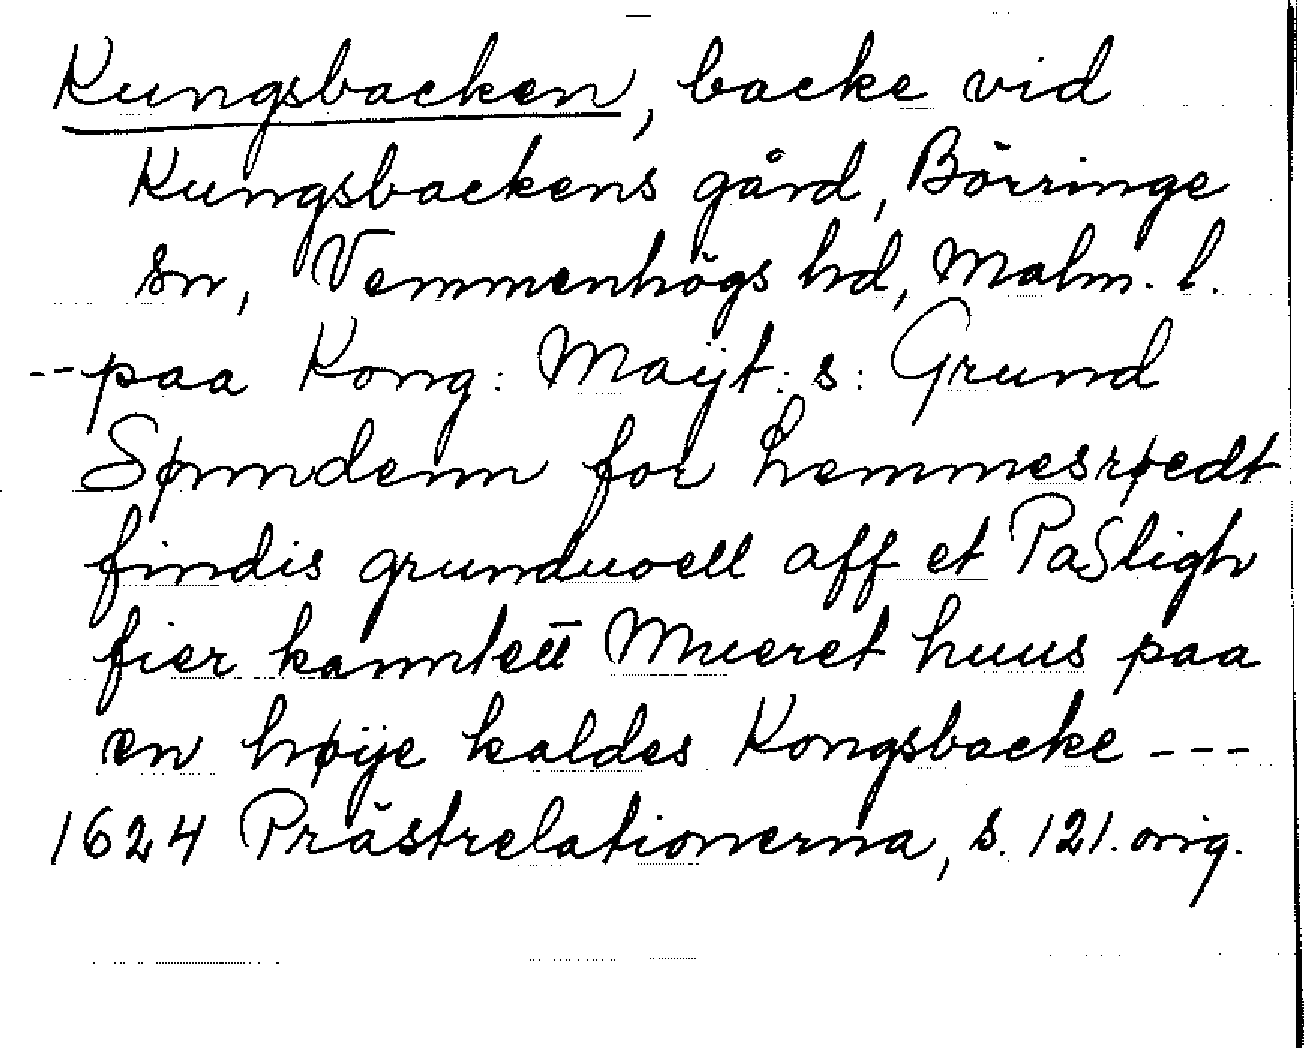 Kungsbacken, backe vid
Kungsbackens gård, Börringe
sn, Vemmenhögs hd, Malm. l.
-- paa Kong: Maijt: s: Grund
Sønndenn for hemmesrøedt
findis grunduoell aff et PaSligh
fier kanntett Mueret huus paa
en høije kaldes Kongsbacke ---
1624 Prästrelationerna, s. 121. orig.